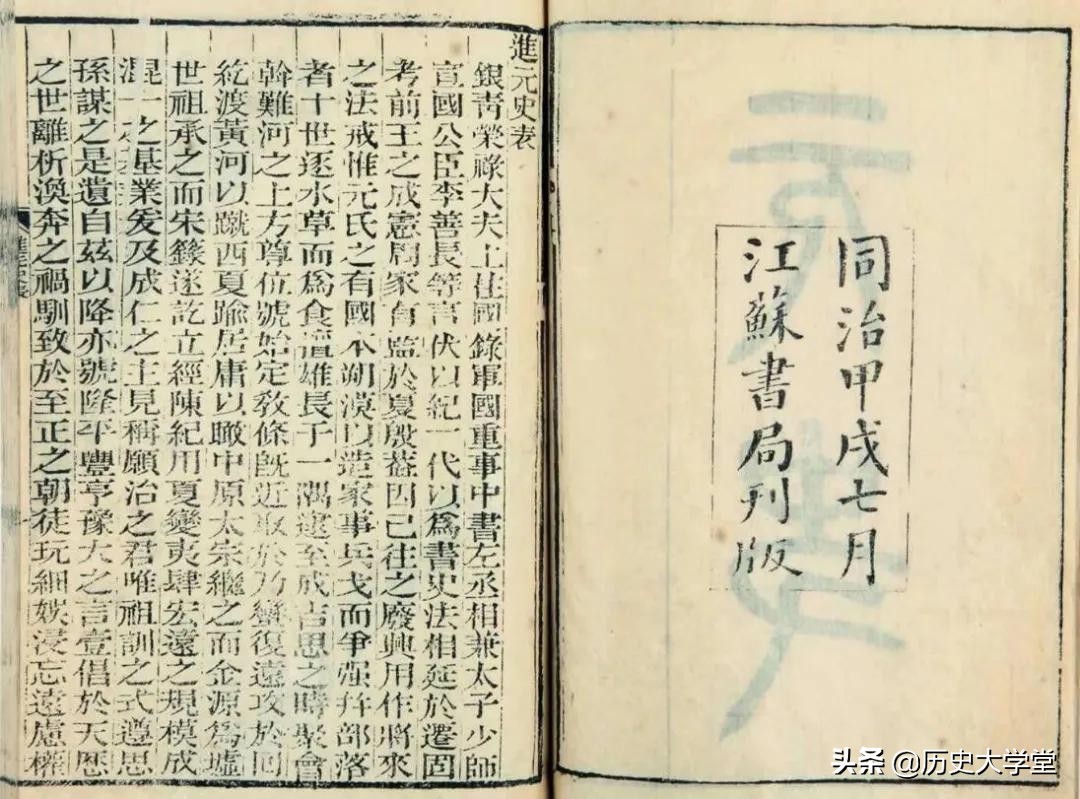 同治甲戌七月
江蘇書局刊版
進元史表
銀青榮祿大夫上柱國錄軍國重事中書左丞相兼太子少師
宣國公臣李善長等言伏以紀一代以爲書史法相延於遷固
考前王之成憲周家有監於夏殷葢因已往之廢興用作將來
之法戒惟元氏之有國本朔漠以造家事兵戈而爭强幷部落
者十世逐水草而爲食道雄長于一隅逮至成吉思之時聚會
斡難河之上方尊位號始定教條旣近取於乃蠻復遠攻於回
紇渡黃河以蹴西夏踰居庸以瞰中原太宗繼之而金源爲墟
世祖承之而宋籙遂訖立經陳紀用夏變夷肆宏遠之規模成
混一之基業爰及成仁之主見稱願治之君唯祖訓之式遵思
孫謀之是遺自兹以降亦號隆平豐亨豫大之言壹倡於天歷
之世離析渙奔之禍馴致於至正之朝徒玩細娛浸忘遠慮權
头条 @历史大学堂